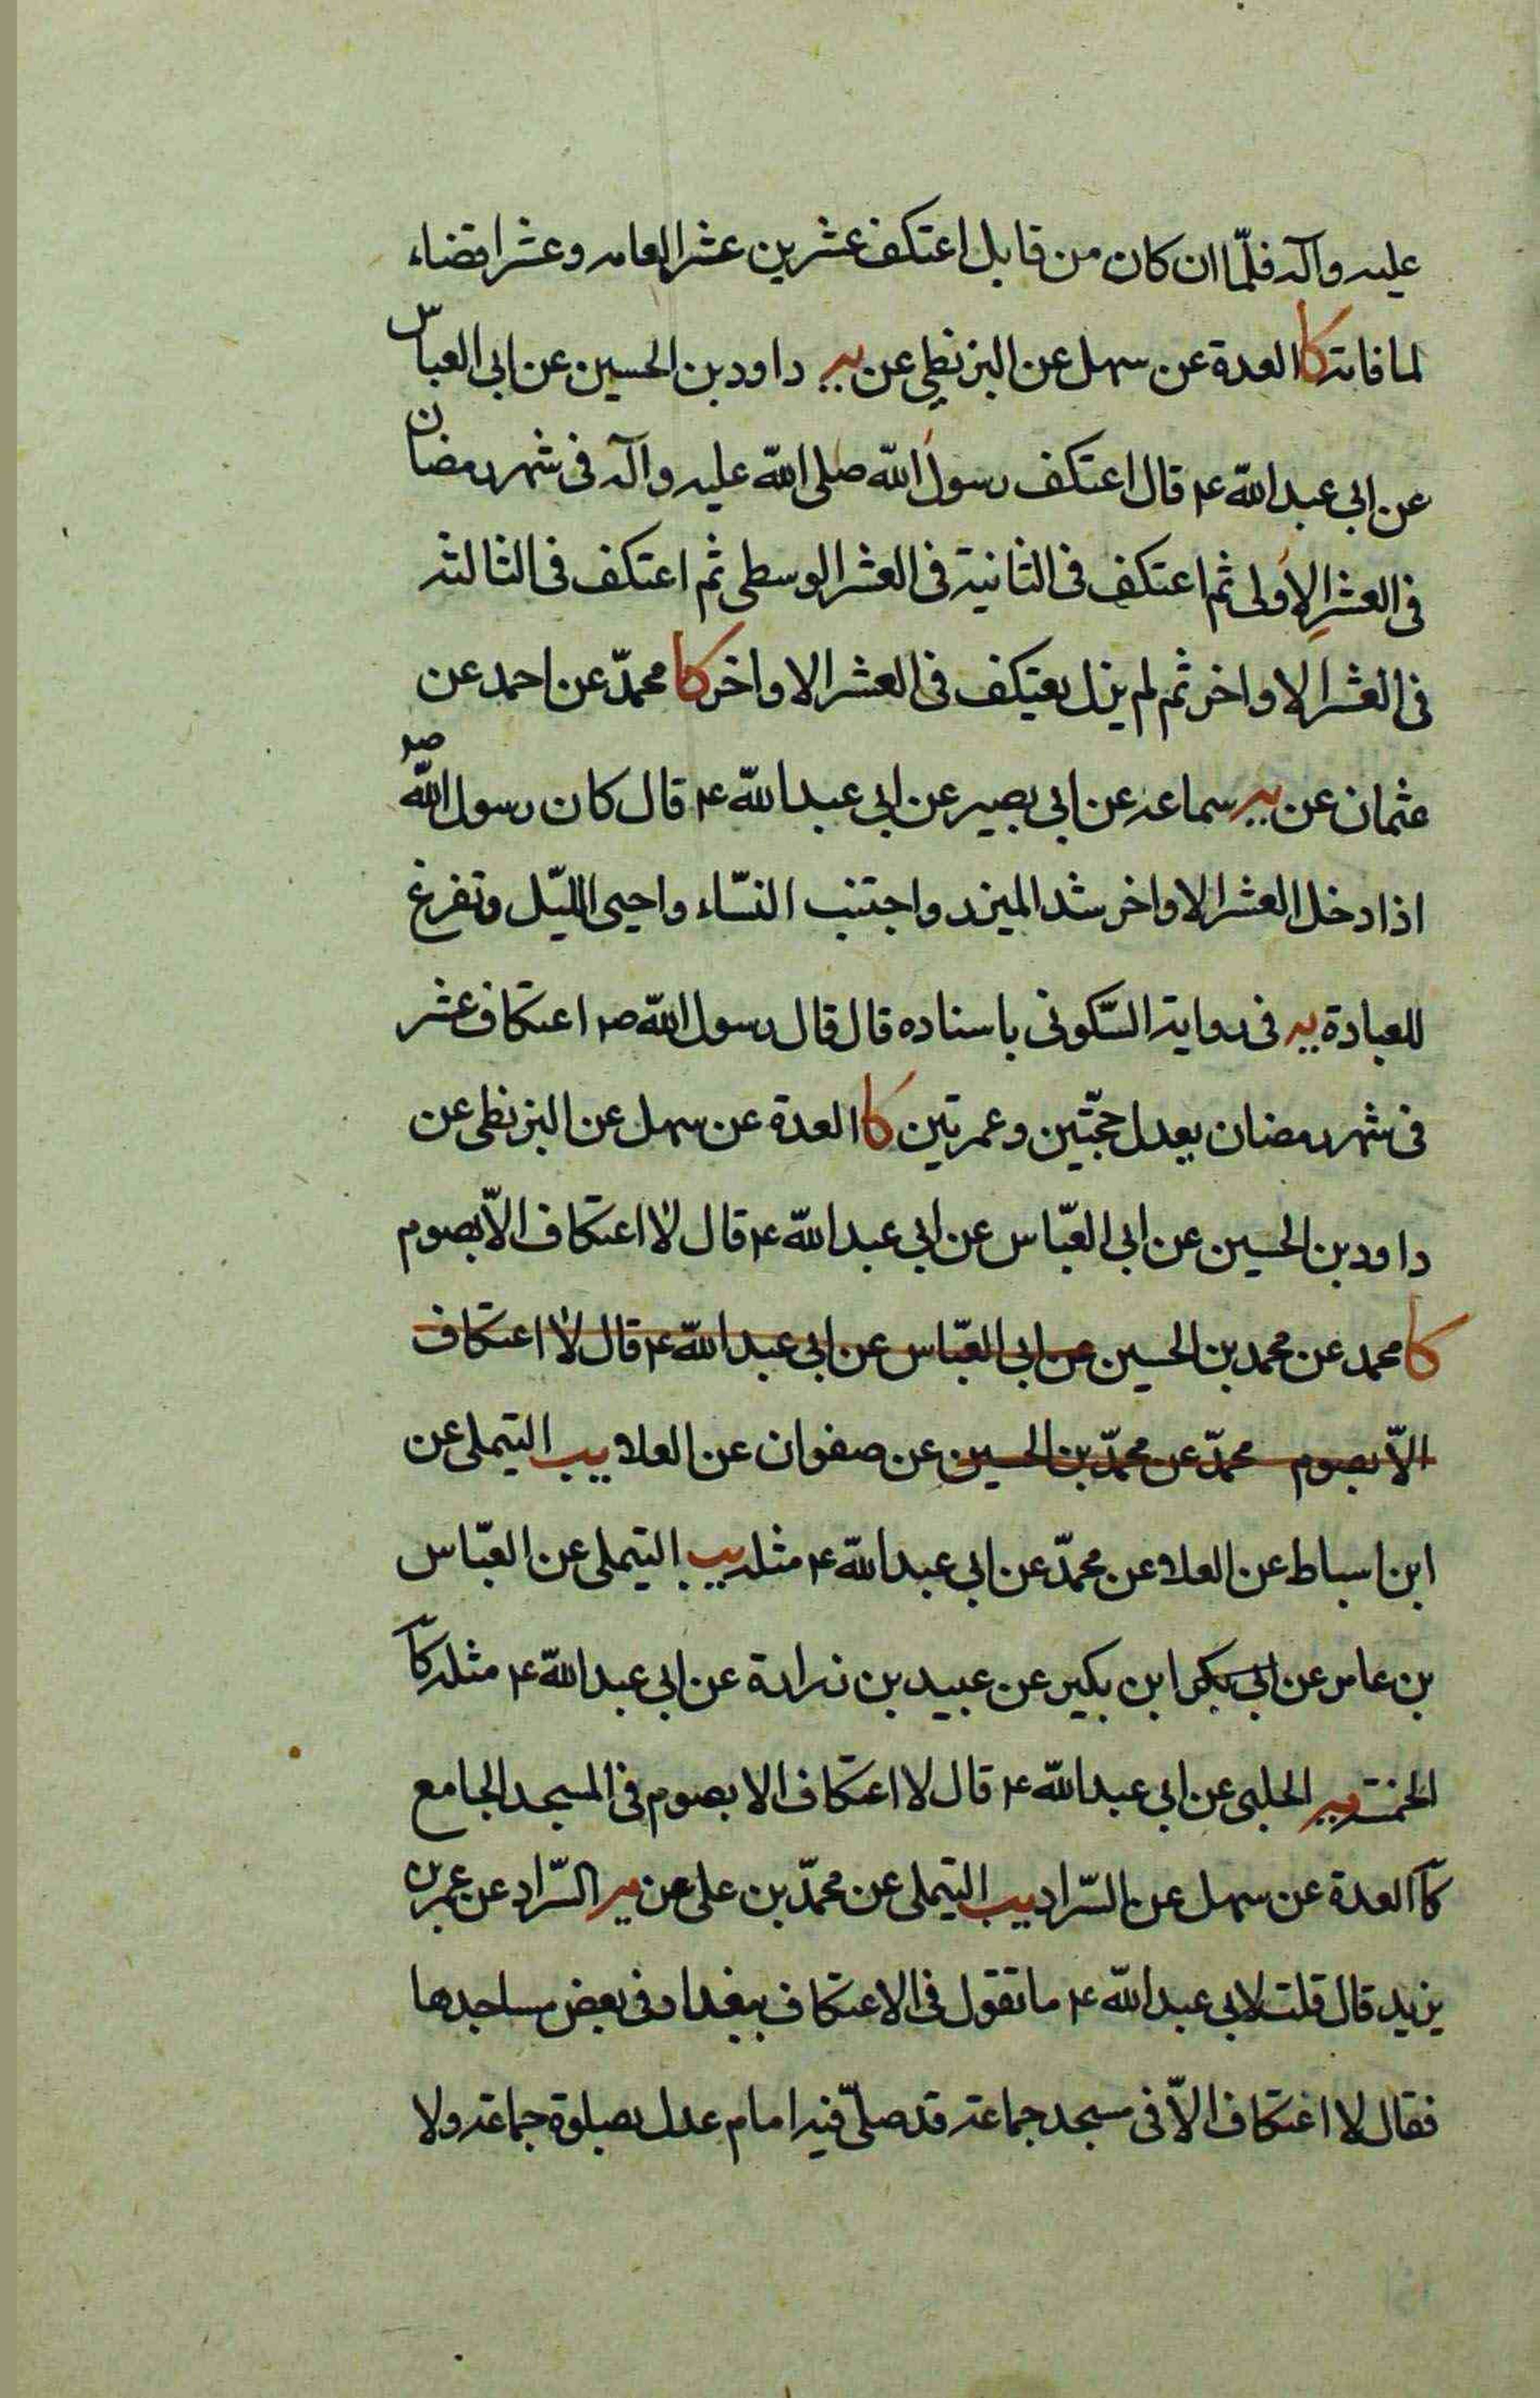 عليه وآله فلمّا ان كان من قابل اعتكف عشرين عشرا لعامه وعشرا قضاء
لما فاته كا العدة عن سهل عن البزنطي عن يه داود بن الحسين عن ابى العباس
عن ابى عبد الله ع قال اعتكف رسول الله صلى الله عليه وآله فى شهر رمضان
فى العشر الاولى ثم اعتكف فى الثانية فى العشر الوسطى ثم اعتكف فى الثالثة
فى العشر الاواخر ثم لم يزل يعتكف فى العشر الاواخر كا محمدّ عن احمد عن
عثمان عن يه سماعة عن ابى بصير عن ابى عبد الله ع قال كان رسول الله ص
اذا دخل العشر الاواخر شد الميزر واجتنب النسّاء واحيى الليّل وتفرغ
للعبادة يه فى رواية السّكونى باسناده قال قال رسول الله ص اعتكاف عشر
فى شهر رمضان يعدل حجّتين وعمرتين كا العدة عن سهل عن البزنطى عن
داود بن الحسين عن ابى العبّاس عن ابى عبد الله ع قال لا اعتكاف الاّ بصوم
كا محمد عن محمد بن الحسين عن ابى العبّاس عن ابى عبد الله ع قال لا اعتكاف
الاّ بصوم محمدّ عن محمدّ بن الحسين عن صفوان عن العلا يب التيملى عن
ابن اسباط عن العلا عن محمدّ عن ابى عبد الله ع مثله يب التيملى عن العبّاس
بن عامر عن ابى بكر ابن بكير عن عبيد بن زرارة عن ابى عبد الله ع مثله كا
الخمسة يه الحلبى عن ابى عبد الله ع قال لا اعتكاف الا بصوم فى المسجد الجامع
كا العدة عن سهل عن السّراد يب التيملى عن محمدّ بن على عن يه السّراد عن عمر بن
يزيد قال قلت لابى عبد الله ع ما تقول فى الاعتكاف ببغداد فى بعض مساجدها
فقال لا اعتكاف الاّ فى مسجد جماعة قد صلىّ فيه امام عدل بصلوة جماعة ولا